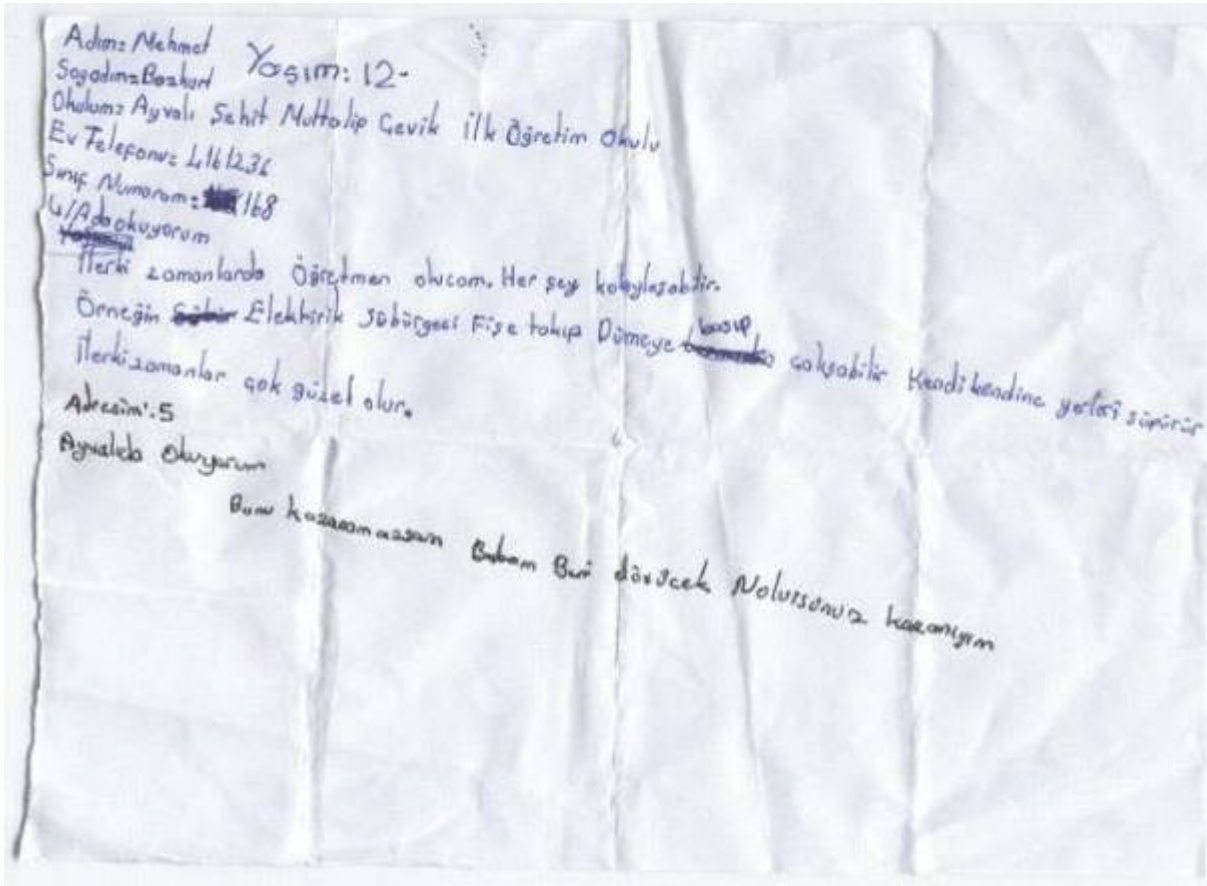 Adım: Mehmet
Yaşım: 12-
Soyadım: Bozkurt
Okulum: Ayvalı Şehit Muttalip Çevik İlk Öğretim Okulu
Ev Telefonu: 4161236
Sınıf Numaram: 168
4/Ada okuyorum
İlerki zamanlarda Öğretmen olucam. Her şey kolaylaşabilir.
Örneğin Elektirik Süpürgesi Fişe takıp Dümeye basıp çalışabilir Kendi kendine yerleri süpürür
İlerki zamanlar çok güzel olur.
Adresim: 5
Ayvalıda Okuyorum
Bunu kazanamazsam Babam Beni dövücek Nolursunuz kazanıyım